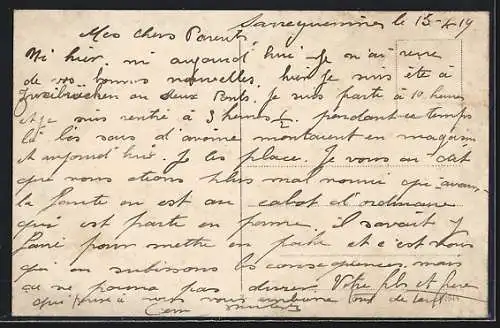 Sarreguemines le 15-4-19
Mes chers Parents
Ni hier, ni aujourd'hui Je n'ai reçu
de vos bonnes nouvelles. hier Je suis été à
Zweibrücken ou deux Ponts. Je suis parti à 10 heures
et je suis rentré à 3 heures ½. pendant ce temps
là les sacs d'avoine montaient en magasin
et aujourd'hui Je les place. Je vous ai dit
que nous étions plus mal nourri qu'avant
la faute en est au cabot d'ordinaire
qui est parti en perme. il savait y
faire pour mettre en et c'est nous
qui en subissons les conséquences. mais
ça ne pourra pas durer. Votre fils et frère
qui pense à vous vous embrasse tous